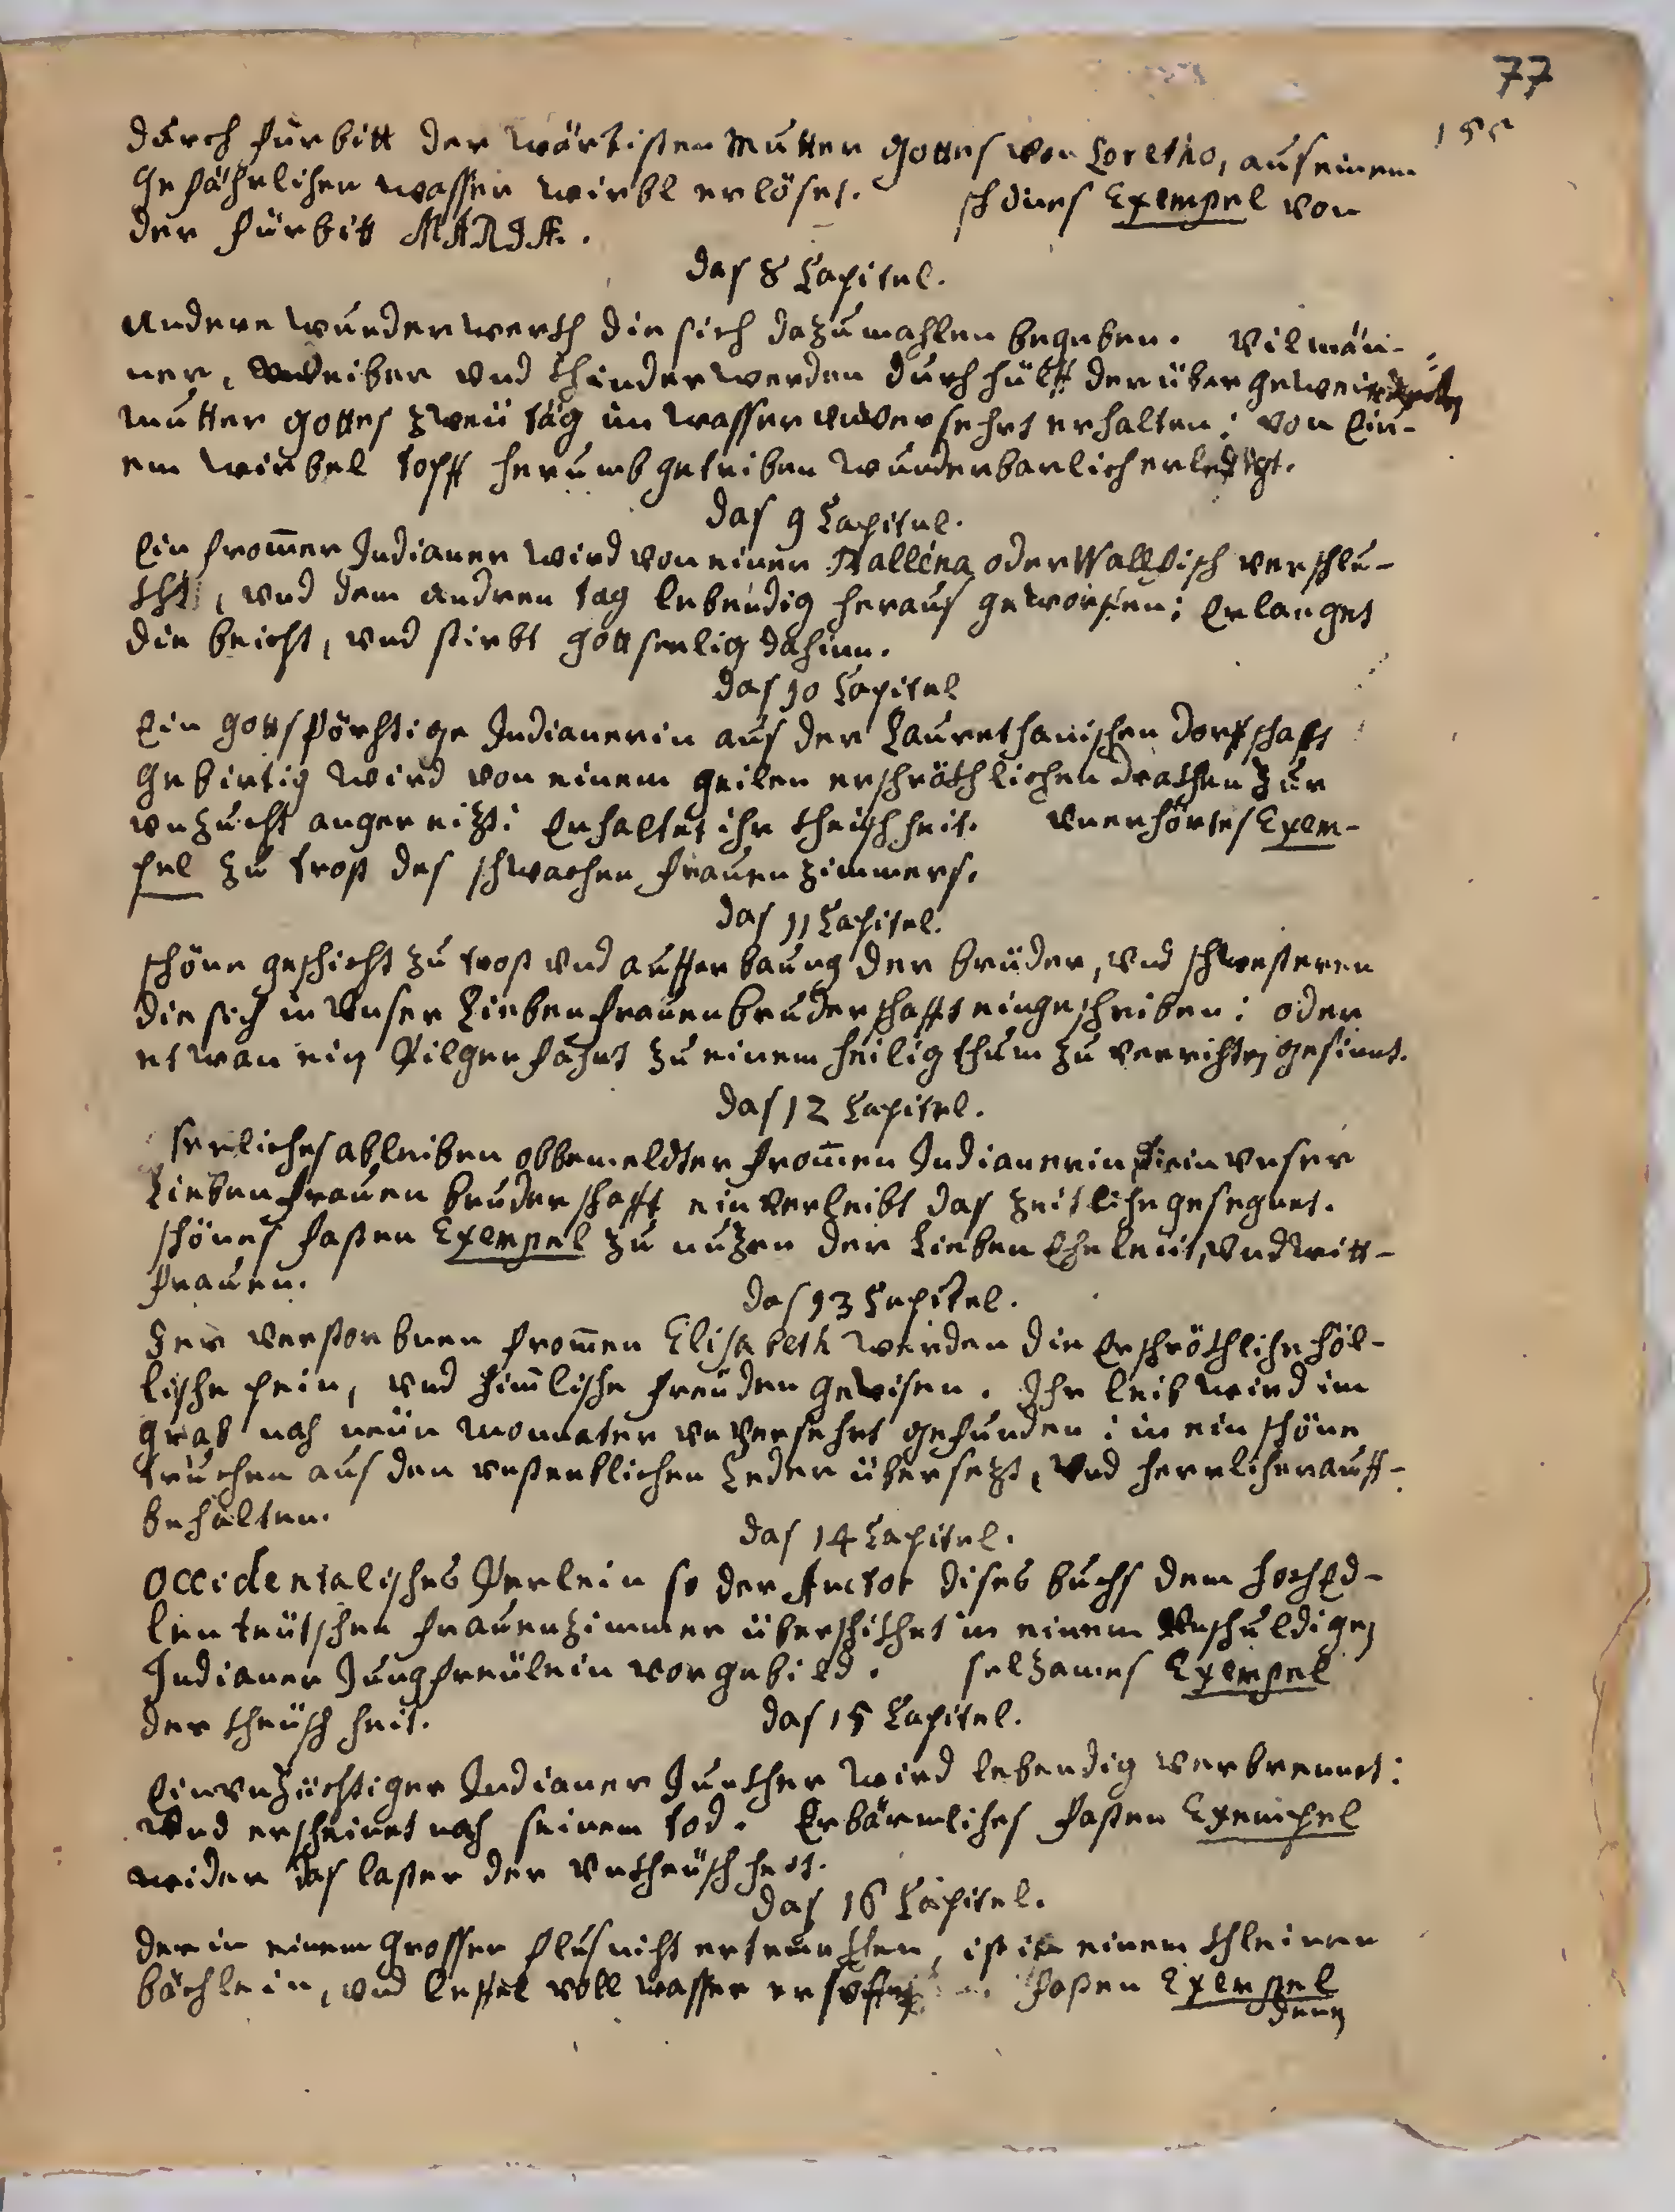 77
155
durch fürbitt der wärtisten Mutter Gottes von Loretho, aus einem
gefährlichen wasser wirbl erlöset. schönes Exempel von
der fürbitt MARIAE.
das 8 Capitel.
Andere wunderwerch die sich dazumahlen begeben. Vil män-
ner, weiber vnd khinder werden durch hülff der über gewei
mutter Gottes zweü täg im wasser vnversehrt erhalten: von Ein-
em wirbel topff herumb getriben wunderbarlich erlediget.
das 9 Capitel.
Ein from̄er Indianer wird von einer Ballena oder Wallfisch verschlu-
kht, vnd dem andren tag lebendig heraus geworfen: Erlanget
die beicht, vnd stirbt gottseelig dahinn.
das 10 Capitel
Ein gottsförchtige Indianerin aus der Laurethanischen dorfschafft
gebirtig wird von einem geilen erschrökhlichen drakhen zur
vnzucht angereitzt: Erhaltet ihr kheischheit. Vnerhörtes Exem-
pel zu trost des schwachen frauenzimmers.
das 11 Capitel.
schöne geschicht zu trost vnd aufferbaung der brüder, vnd schwesteren
die sich in Vnser Lieben frauen bruderschafft eingeschriben: oder
etwan ein Pilgerfahrt zu einem heiligthum zu verrichten gesinnt.
das 12 Capitel.
seeliches ableiben obbemeldter from̄en Indianerin, die in vnser
Lieben frauen bruderschafft einverleibt das zeitliche gesegnet.
schönes fasten Exempel zu nutzen der Lieben Eheleüt, vnd witt-
frauen.
das 13 Capitel.
Der verstorbnen from̄en Elisabeth werden die Erschrökhliche höl-
lische pein, vnd him̄lische freüden gewisen. Ihr leib wird im
grab nach neün monnaten vnversehrt gefunden: in ein schöne
truchen aus den vnsterblichen Zeder übersetzt, vnd herrlicher auff-
behalten.
das 14 Capitel.
Occidentalisches Perlein so der Auctor dises buchs dem hochEd-
len teütschen frauenzimmer überschikhet in einem Vnschuldigen
Indianer Jungfreülein vorgebild. selzames Exempel
der kheüschheit.
das 15 Capitel.
Ein vnzüchtiger Indianer Junkher wird lebendig verbrennet:
vnd erscheinet nach seinem tod. Erbärmliches fasten Exempel
wider das laster der vnkheüschheit.
das 16 Capitel.
der in einem grossen flus nicht ertrunkhen, ist in einem khleinen
bächlein, vnd leffel voll wasser ersoffen. fasten Exempel
denen